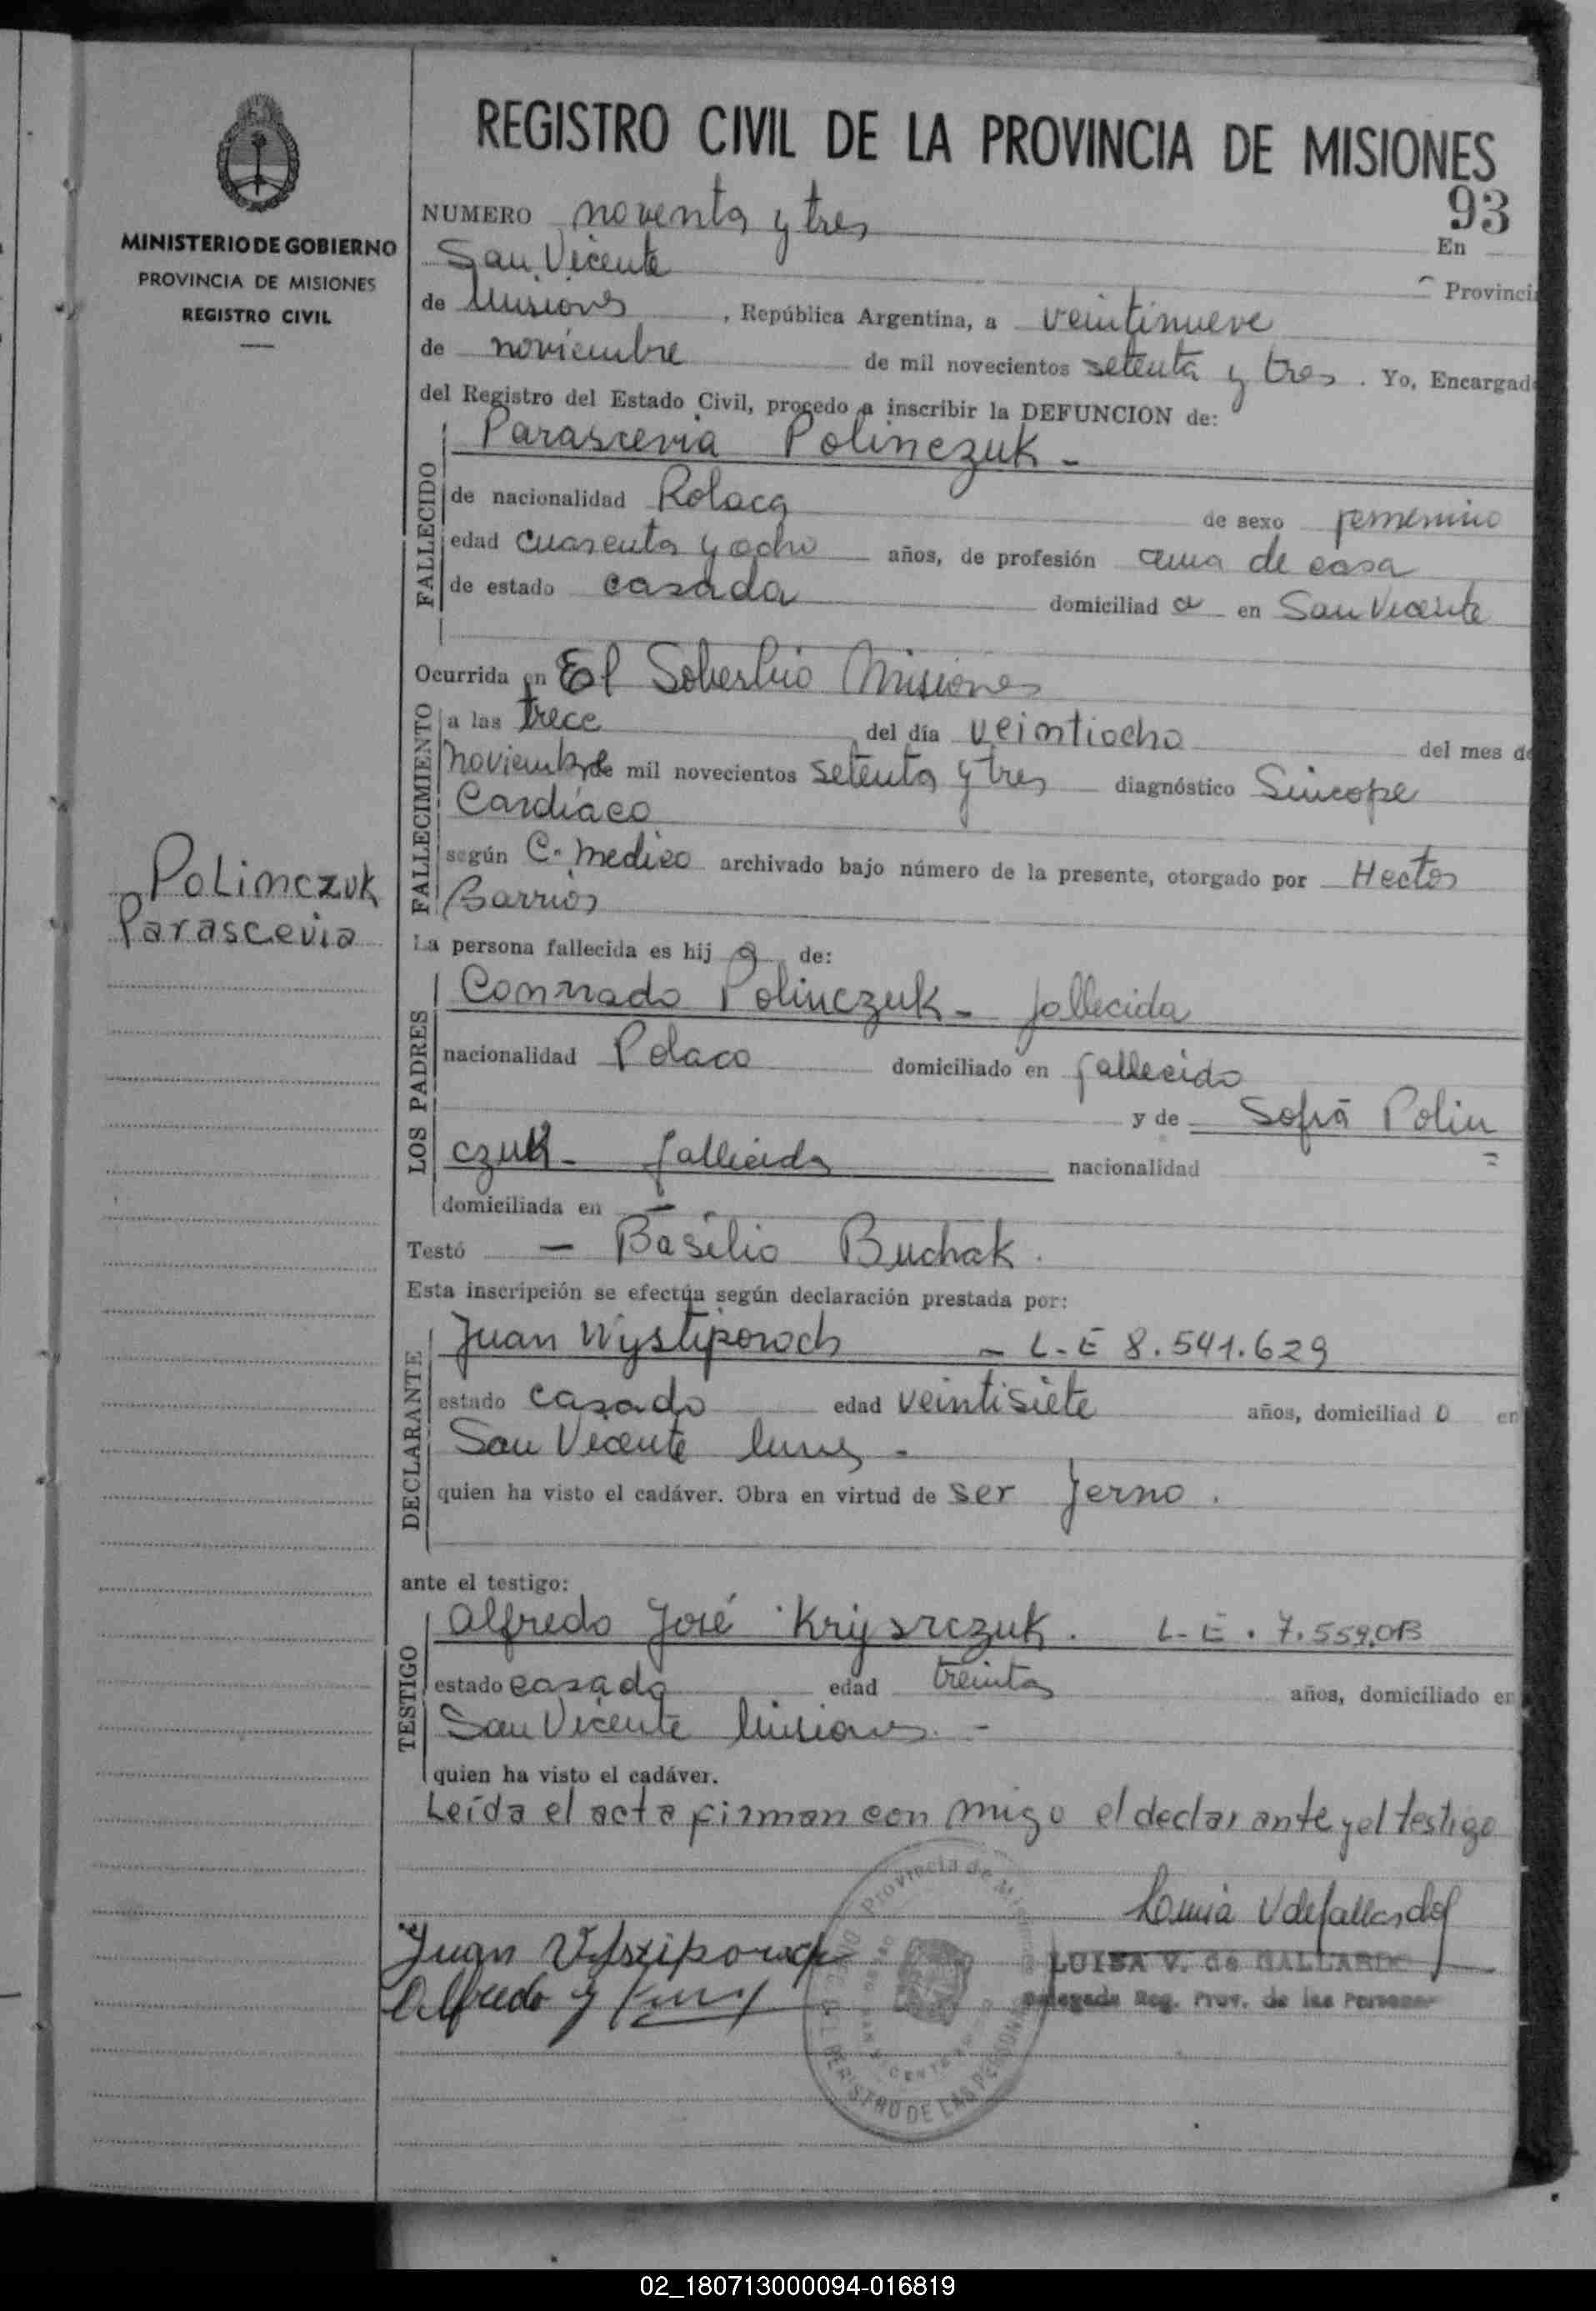 REGISTRO CIVIL DE LA PROVINCIA DE MISIONES
93
MINISTERIO DE GOBIERNO
PROVINCIA DE MISIONES
REGISTRO CIVIL
NUMERO noventa y tres En
San Vicente Provinci
de Misiones, República Argentina, a veintinueve
de noviembre de mil novecientos setenta y tres. Yo, Encargad
del Registro del Estado Civil, procedo a inscribir la DEFUNCION de:
FALLECIDO
Parascevia Polinczuk -
de nacionalidad Polaca de sexo femenino
edad cuarenta y ocho años, de profesión ama de casa
de estado casada domiciliad a en San Vicente
Ocurrida en El Soberbio Misiones
FALLECIMIENTO
a las trece del día veintiocho del mes de
noviembre de mil novecientos setenta y tres diagnóstico Sincope
Cardíaco
según C. medico archivado bajo número de la presente, otorgado por Hector
Barrios
Polinczuk
Parascevia
La persona fallecida es hij a de:
LOS PADRES
Conrrado Polinczuk - fallecida
nacionalidad Polaco domiciliado en fallecido
y de Sofia Polin
czuk - fallecida nacionalidad =
domiciliada en -
Testó - Basilio Buchak.
Esta inscripción se efectúa según declaración prestada por:
DECLARANTE
Juan Wystiporoch - L-E 8.541.629
estado casado edad veintisiete años, domiciliad o en
San Vicente Mnes -
quien ha visto el cadáver. Obra en virtud de ser Jerno.
ante el testigo:
TESTIGO
Alfredo José Kryszczuk. L-E. 7.559.
estado casado edad treinta años, domiciliado en
San Vicente Misiones. -
quien ha visto el cadáver.
Leída el acta firman con migo el declarante y el testigo
Provincia de Misiones
REGISTRO DE LAS PERSONAS
Juan
Alfredo J
LUISA V. de GALLARDO
Delegada Reg. Prov. de las Personas
02_180713000094-016819